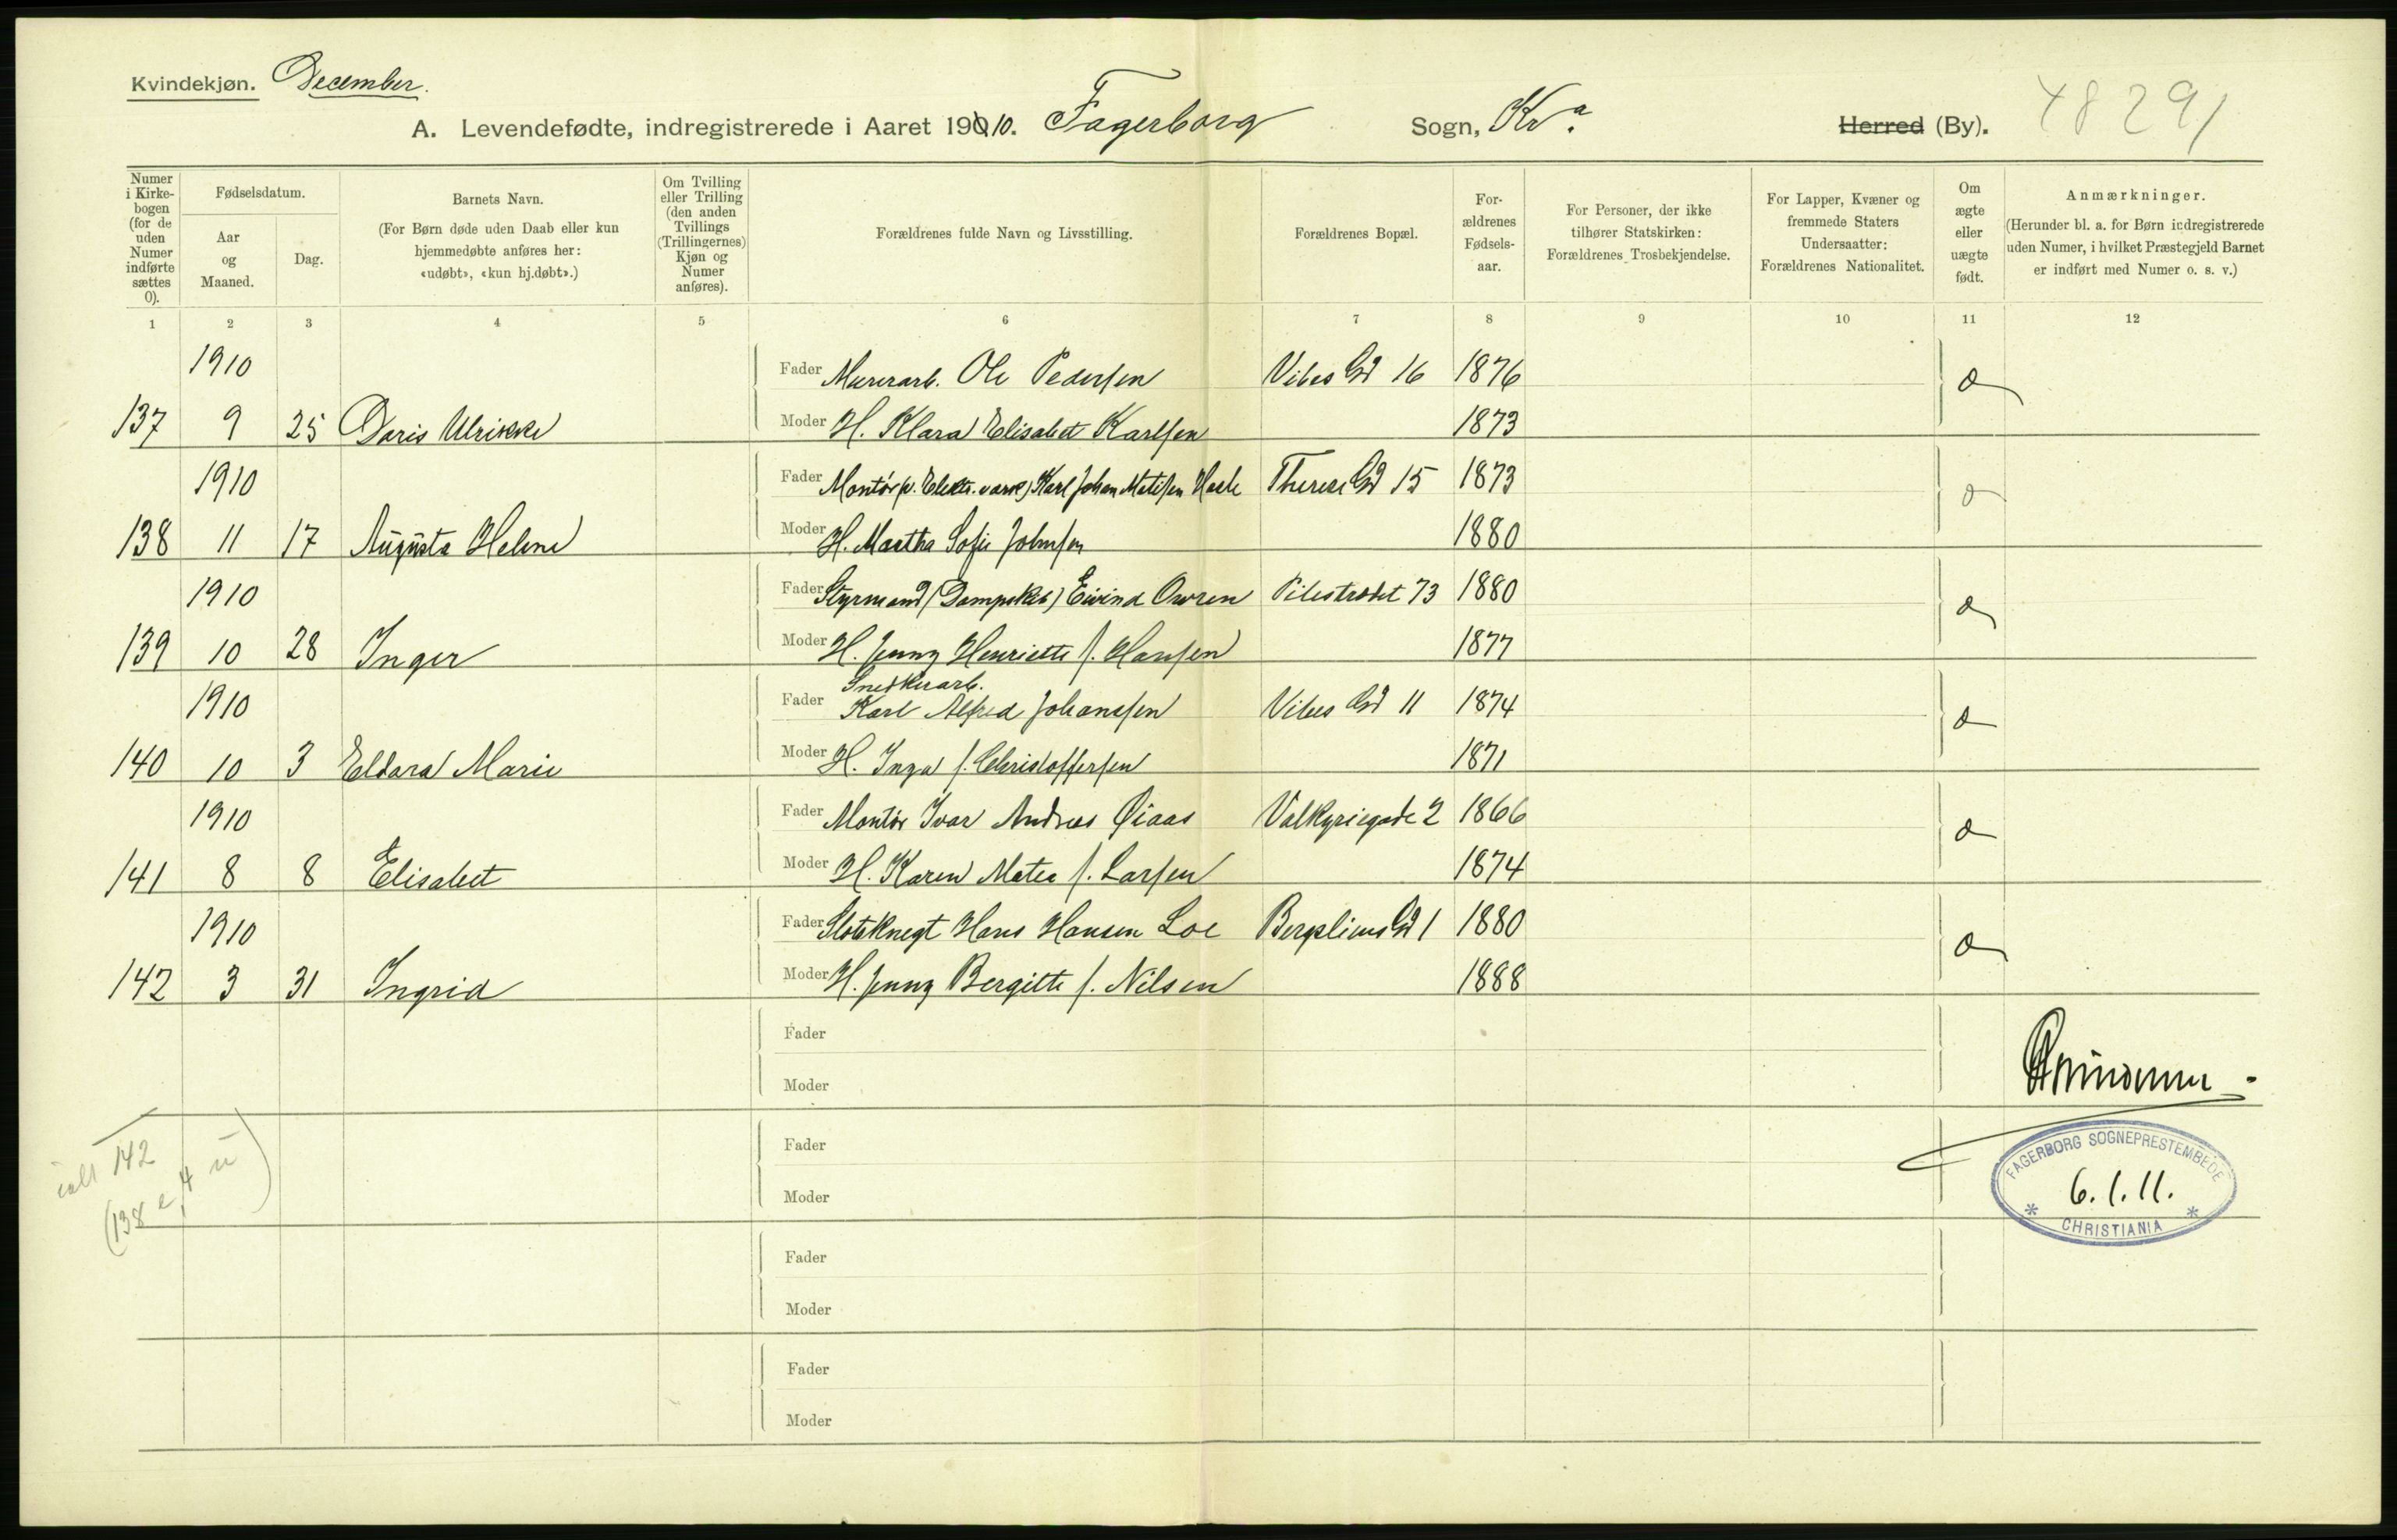 Kvindekjøn. December.
A. Levendefødte, indregistrerede i Aaret 1910. Fagerborg Sogn, Kra. Herred (By). 48291
Numer i Kirkebogen (for de uden Numer indførte sættes 0).
Fødselsdatum.
Aar og Maaned.
Dag.
Barnets Navn.
(For Børn døde uden Daab eller kun hjemmedøbte anføres her: «udøbt», «kun hj.døbt».)
Om Tvilling eller Trilling (den anden Tvillings (Trillingernes) Kjøn og Numer anføres).
Forældrenes fulde Navn og Livsstilling.
Forældrenes Bopæl.
Forældrenes Fødselsaar.
For Personer, der ikke tilhører Statskirken: Forældrenes Trosbekjendelse.
For Lapper, Kvæner og fremmede Staters Undersaatter: Forældrenes Nationalitet.
Om ægte eller uægte født.
Anmærkninger.
(Herunder bl. a. for Børn indregistrerede uden Numer, i hvilket Præstegjeld Barnet er indført med Numer o. s. v.)
1 2 3 4 5 6 7 8 9 10 11 12
1910 Fader Murerarb. Ole Pedersen Vibes Gd 16 1876
137 9 25 Doris Ulrikke Moder H. Klara Elisabet Karlsen 1873
1910 Fader Montør (v. Elektr. værk) Karl Johan Matisen Hasle Therese Gd 15 1873
138 11 17 Augusta Helene Moder H. Martha Sofie Johnsen 1880
1910 Fader Styrmand (Dampskib) Eivind Owren Pilestrædet 73 1880
139 10 28 Inger Moder H. Jenny Henriette f. Hansen 1877
Snedkerarb.
1910 Fader Karl Alfred Johansen Vibes Gd 11 1874
140 10 3 Eldara Marie Moder H. Inga f. Christoffersen 1871
1910 Fader Montør Ivar Andreas Øiaas Valkyriegade 2 1866
141 8 8 Elisabet Moder H. Karen Matea f. Larsen 1874
1910 Fader Slotsknegt Hans Hansen Loe Bergsliens Gd 1 1880
142 3 31 Ingrid Moder H. Jenny Bergitte f. Nilsen 1888
Fader
Moder
ialt 142
(138 e, 4 u)
Fader
Moder
FAGERBORG SOGNEPRESTEMBEDE
6.1.11.
CHRISTIANIA
Fader
Moder
Fader
Moder